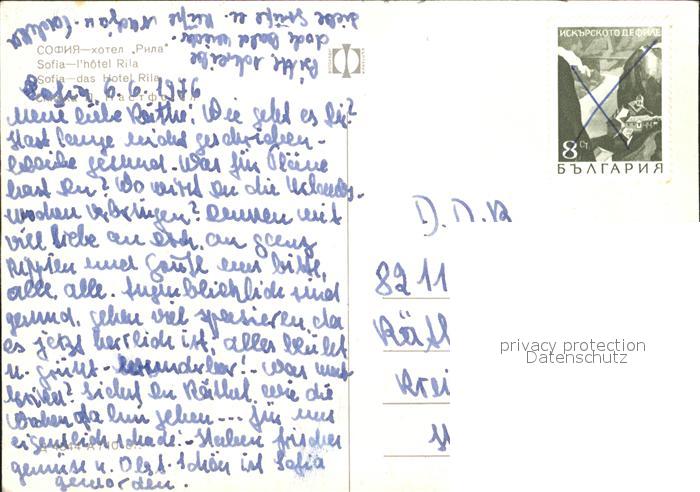 СОФИЯ—хотел „Рила"
Sofia—l'hôtel Rila
Sofia—das Hotel Rila
Bitte schreibe
doch bald wieder.
Liebe Grüße u. Küße
Sofia, 6.6.1976
Meine liebe Käthe! Wie geht es Dir?
Hast lange nicht geschrieben -
bleibe gesund. Was für Pläne
hast Du? Wo wirst du die Urlaubs-
wochen verbringen? Denken mit
viel Liebe an euch, an ganz
und Grüße uns bitte,
alle, alle. Augenblicklich sind
gesund, gehen viel spazieren, da
es jetzt herrlich ist, alles blüht
u. grünt - wunderbar! - Was macht
Siehst du Käthe, wie die
Wochen dahin gehen --- für uns
eigentlich schade! - Haben frisches
gemüse u. Obst. Schön ist Sofia
geworden.
ИСКЪРСКОТО ДЕФИЛЕ
8 СТ
БЪЛГАРИЯ
D.D.R
8211
Käth
Krei
privacy protection
Datenschutz